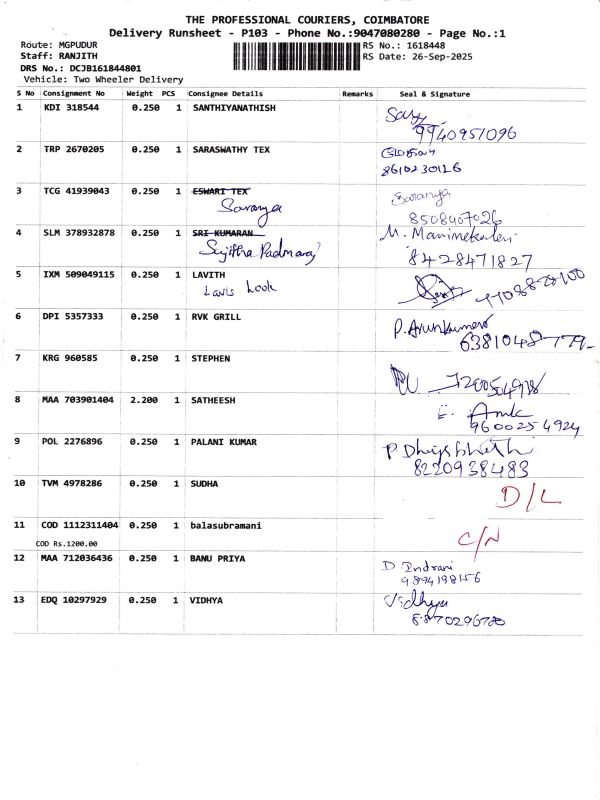 THE PROFESSIONAL COURIERS, COIMBATORE
Delivery Runsheet - P103 - Phone No.:9047080280 - Page No.:1
Route: MGPUDUR RS No.: 1618448
Staff: RANJITH RS Date: 26-Sep-2025
DRS No.: DCJB161844801
Vehicle: Two Wheeler Delivery
S No Consignment No Weight PCS Consignee Details Remarks Seal & Signature
1 KDI 318544 0.250 1 SANTHIYANATHISH
9940957096
2 TRP 2670205 0.250 1 SARASWATHY TEX
8610230126
3 TCG 41939043 0.250 1 ESWARI TEX Saranya
Saranya 8508407026
4 SLM 378932878 0.250 1 SRI KUMARAN M. Manimekalai
Sujitha Padmaraj 8428471827
5 IXM 509049115 0.250 1 LAVITH
Lavis Look
6 DPI 5357333 0.250 1 RVK GRILL P. Arunkumar
6381048779-
7 KRG 960585 0.250 1 STEPHEN
8 MAA 703901404 2.200 1 SATHEESH E.
9600254924
9 POL 2276896 0.250 1 PALANI KUMAR P
8220938483
10 TVM 4978286 0.250 1 SUDHA D/L
11 COD 1112311404 0.250 1 balasubramani C/N
COD Rs.1200.00
12 MAA 712036436 0.250 1 BANU PRIYA D. Indrani
9894198156
13 EDQ 10297929 0.250 1 VIDHYA Vidhya